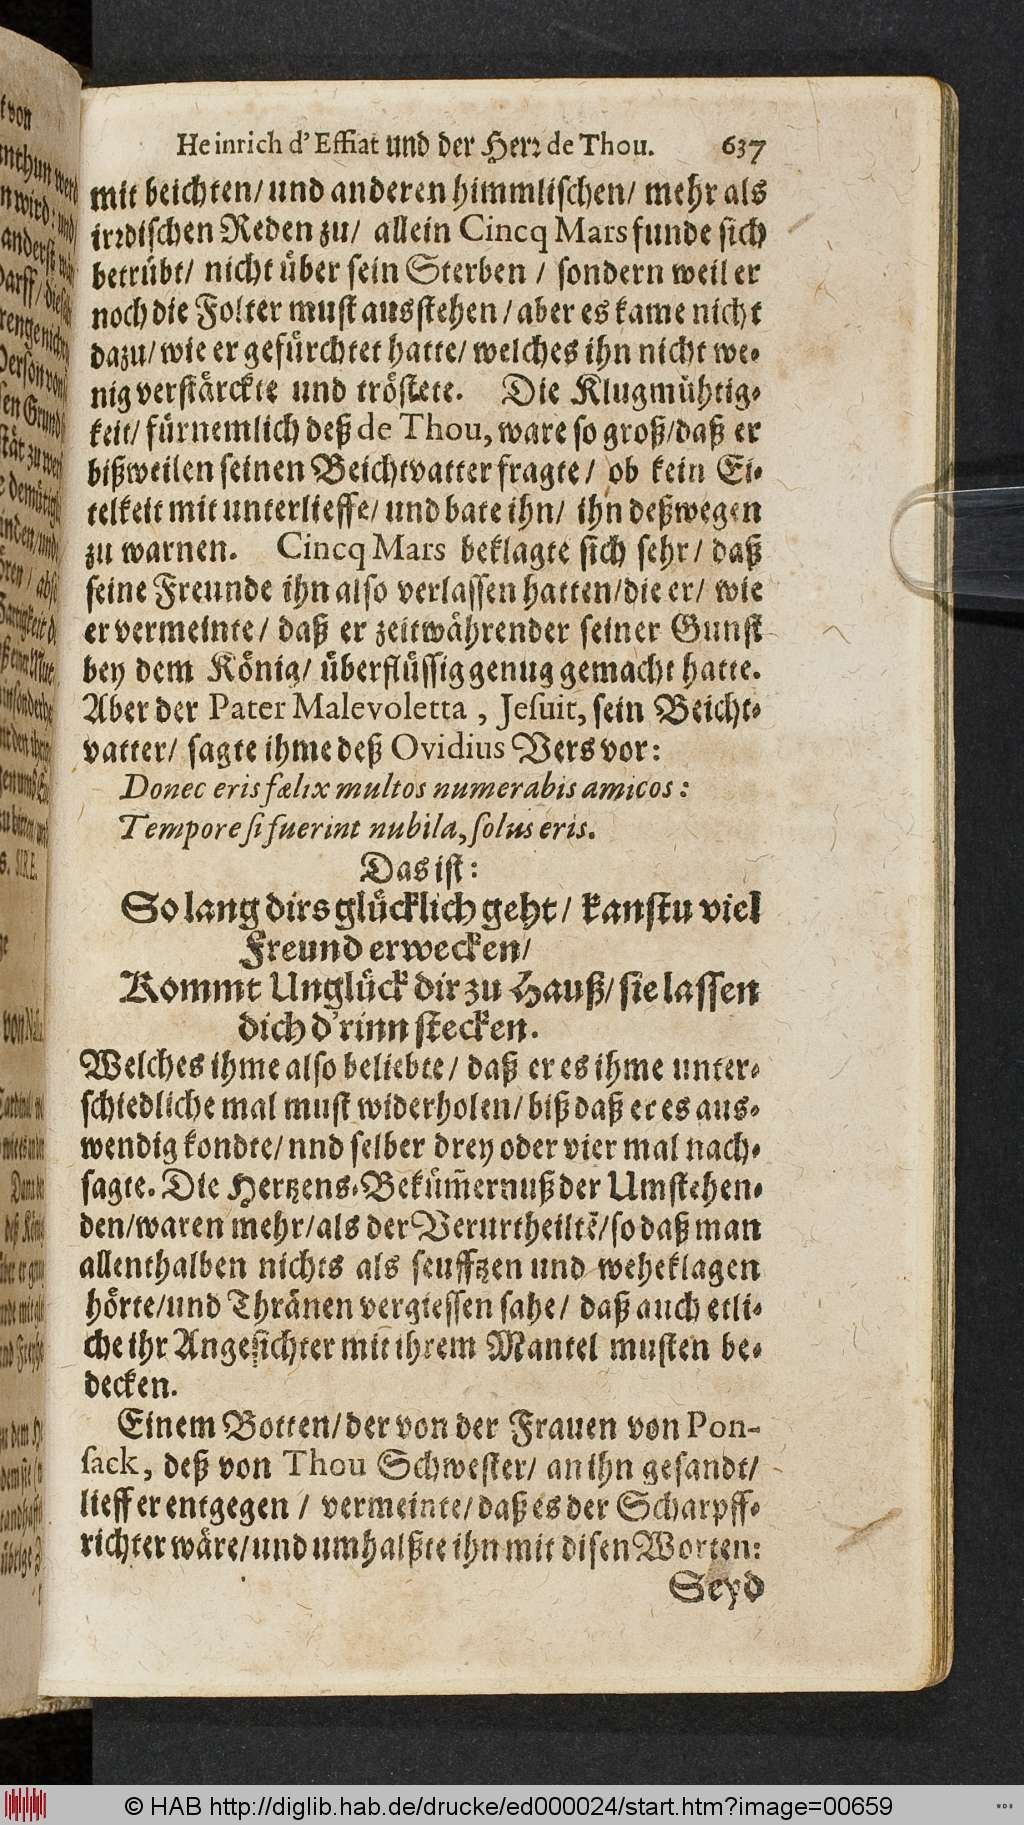 Heinrich d'Effiat und der Herꝛ de Thou. 637
mit beichten/ und anderen himmlischen/ mehr als
irꝛdischen Reden zu/ allein Cincq Mars funde sich
betrübt/ nicht über sein Sterben / sondern weil er
noch die Folter must ausstehen / aber es kame nicht
dazu/ wie er gefürchtet hatte/ welches ihn nicht we-
nig verstärckte und tröstete. Die Klugmühtig-
keit/ fürnemlich deß de Thou, ware so groß/daß er
bißweilen seinen Beichtvatter fragte/ ob kein Ei-
telkeit mit unterlieffe/ und bate ihn/ ihn deßwegen
zu warnen. Cincq Mars beklagte sich sehr/ daß
seine Freunde ihn also verlassen hatten/die er/ wie
er vermeinte/ daß er zeitwährender seiner Gunst
bey dem König/ überflüssig genug gemacht hatte.
Aber der Pater Malevoletta , Jesuit, sein Beicht-
vatter/ sagte ihme deß Ovidius Vers vor:
Donec eris fælix multos numerabis amicos:
Tempore si fuerint nubila, solus eris.
Das ist:
So lang dirs glücklich geht/ kanstu viel
Freund erwecken/
Kommt Unglück dir zu Hauß/ sie lassen
dich d'rinn stecken.
Welches ihme also beliebte/ daß er es ihme unter-
schiedliche mal must widerholen/ biß daß er es aus-
wendig kondte/ nnd selber drey oder vier mal nach-
sagte. Die Hertzens-Beküm̄ernuß der Umstehen-
den/waren mehr/als der Verurtheiltē/so daß man
allenthalben nichts als seufftzen und weheklagen
hörte/und Thränen vergiessen sahe/ daß auch etli-
che ihr Angesichter mit ihrem Mantel musten be-
decken.
Einem Botten/ der von der Frauen von Pon-
sack, deß von Thou Schwester/ an ihn gesandt/
lieff er entgegen / vermeinte/ daß es der Scharpff-
richter wäre/und umhalßte ihn mit disen Worten:
Seyd
© HAB http://diglib.hab.de/drucke/ed000024/start.htm?image=00659